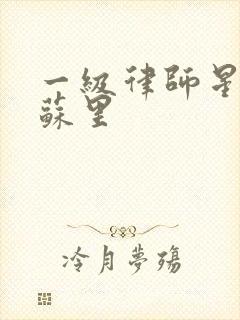 一級律師星
蘇里
冷月夢殤